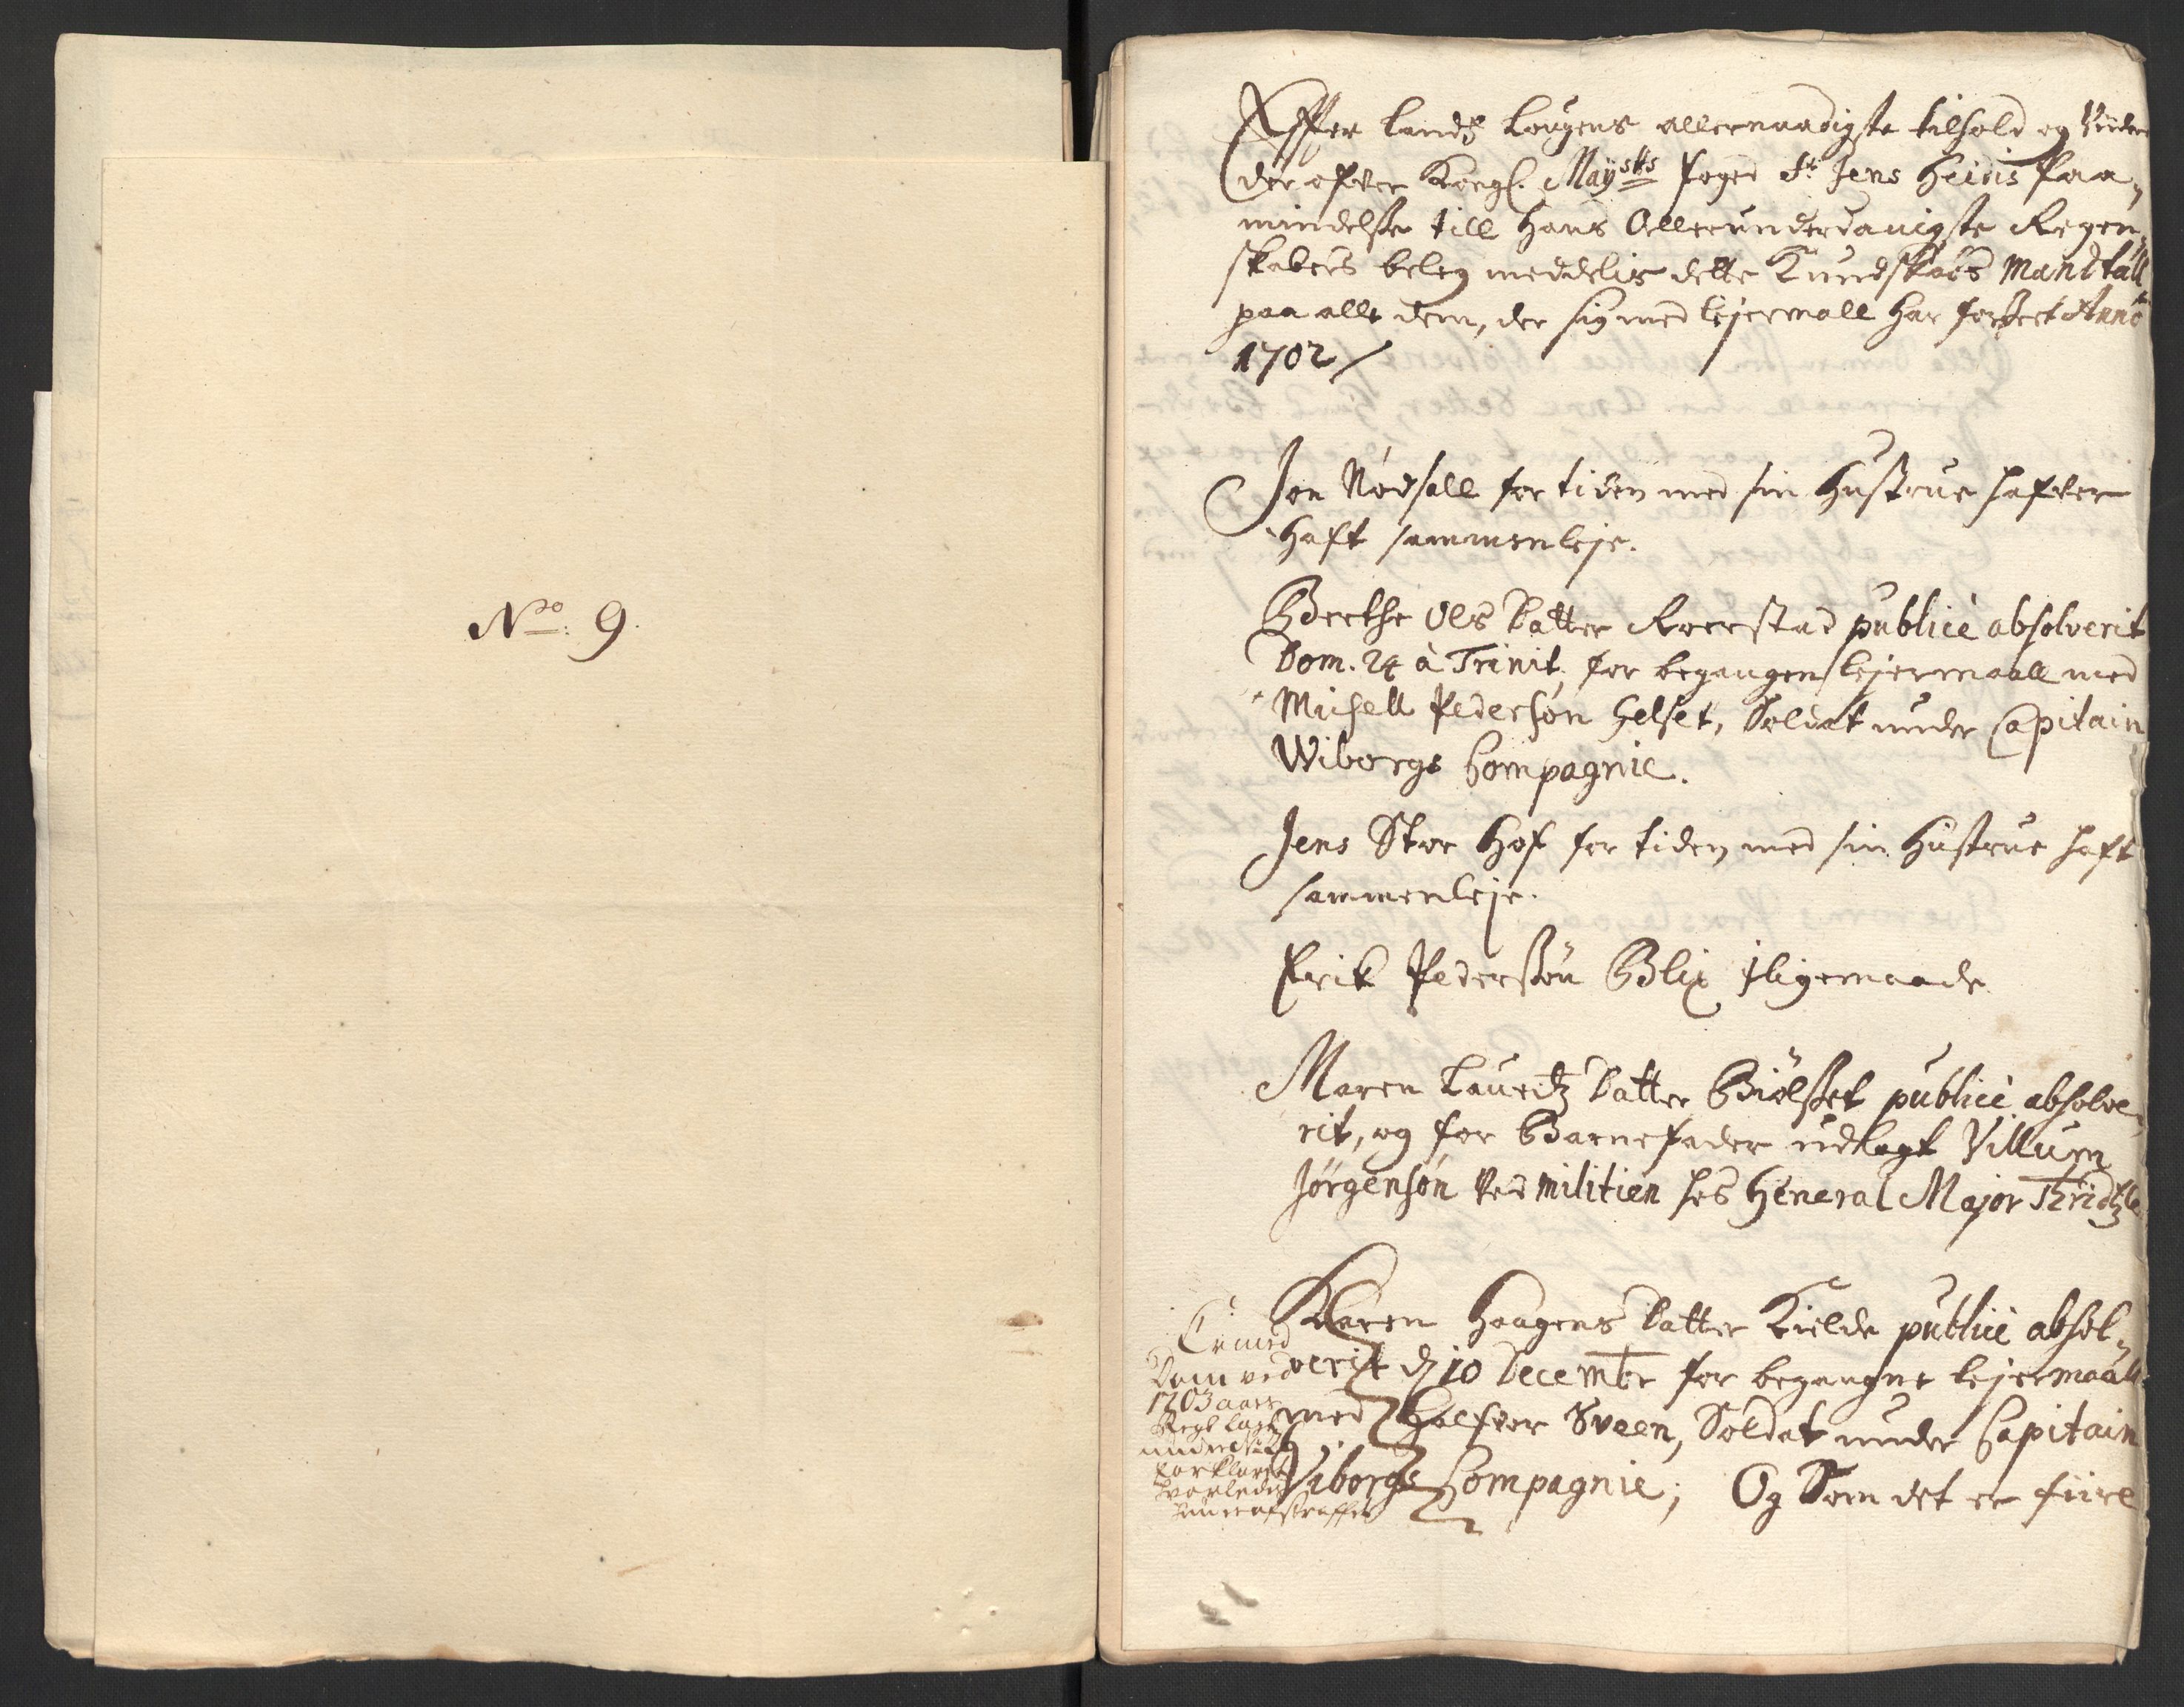 No: 9.
Effter Lands Lougens allernaadigste tilhold og Viidere
der ofver Kongl. Maÿsts foged Sr Jens Heins Paa,,
mindelße till hans Allerunderdanigste Regen,,
skabers beleg meddelis dette Kundskabs Mandtall
paa alle dem, der sig med lejermaall har forseet Anno
1702 /
Jon Nodsall for tiden med sin Hustrue hafver
haft sammenleje.
Berthe Ols Datter Roerstad publicè absolverit
Dom. 24 à Trinit. for begangen lejermaall med
Michell Pedersøn Helset, Soldat under Capitain
Wiborgs Compagnie.
Jens Stor Hof for tiden med sin Hustrue haft
sammenleje.
Erik Pederssøn Blix iligemaade
Maren Lauridz Datter Biölset publicè absolve,,
rit, og for Barnefader udlagt Villum
Jörgensøn ved militien hos General Major
Karen Haagens Datter Kielde publicè absol,,
verit d 10 Decembr for begangne lejermaall
med Halfvor Sveen, Soldat under Capitain
Viborgs Compagnie; Og Som det er fiire
Er med
Dom ved
1703 aars
Regl lagt
under
forklaret
hvorledis
hun er afstraffet